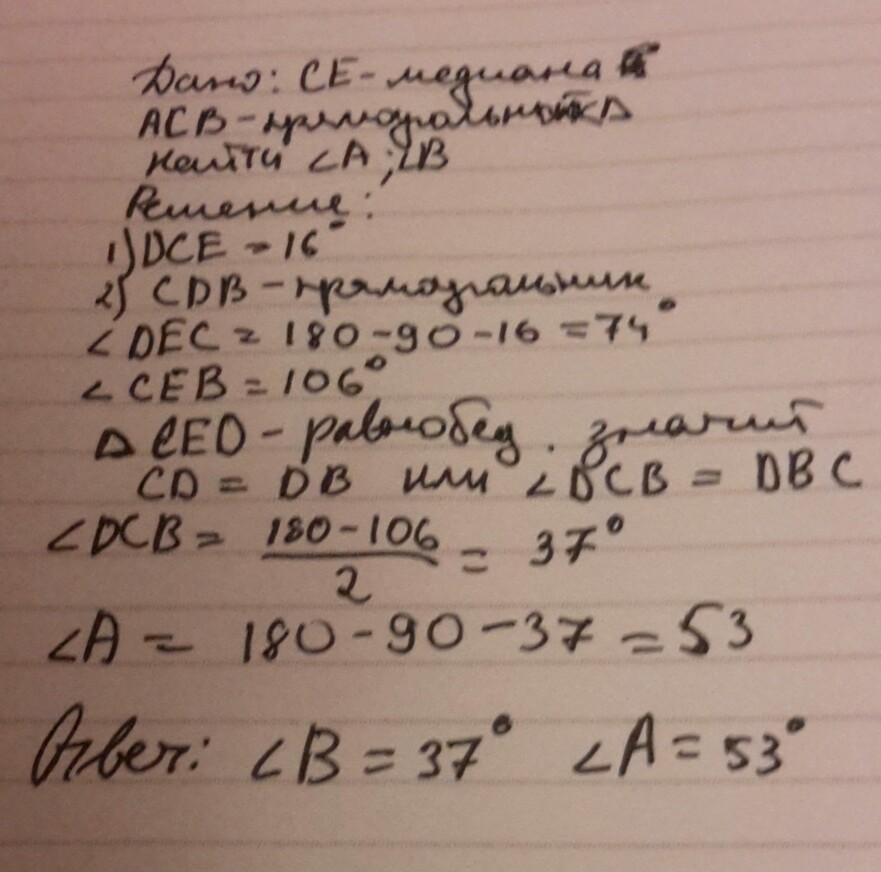 Дано: CE - медиана
ACB - прямоугольный Δ
найти ∠A; ∠B
Решение:
1) DCE = 16°
2) CDB - прямоугольник
∠DEC = 180 - 90 - 16 = 74°
∠CEB = 106°
Δ CED - равнобед. значит
CD = DB или ∠DCB = DBC
∠DCB = (180 - 106)/2 = 37°
∠A = 180 - 90 - 37 = 53
Ответ: ∠B = 37° ∠A = 53°